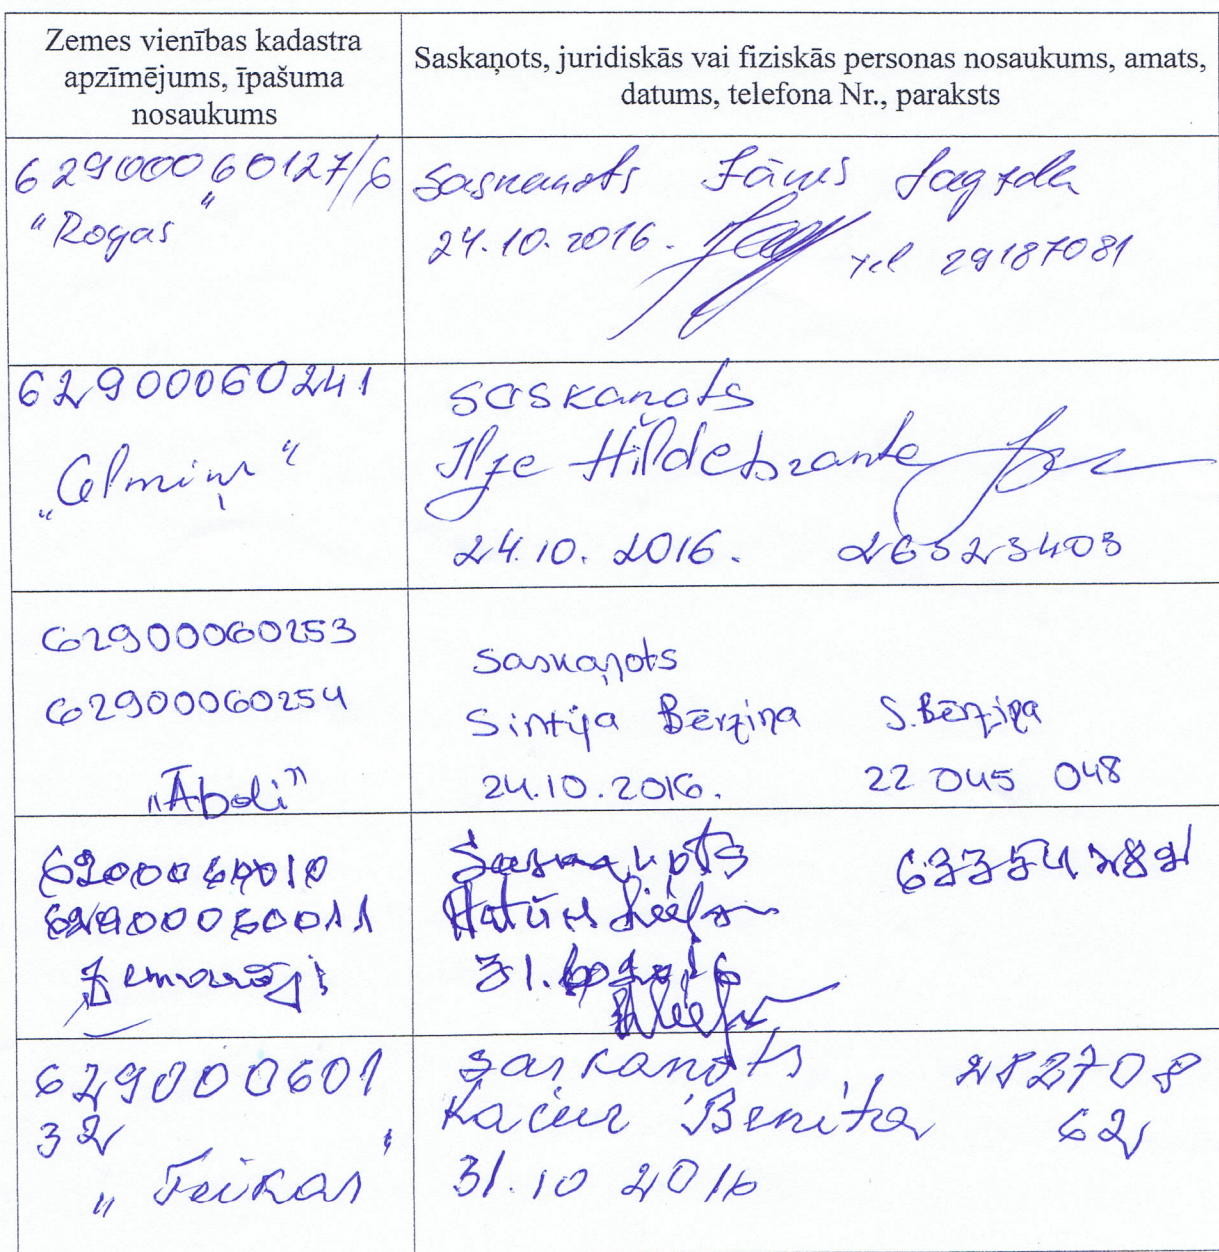 Zemes vienības kadastra
apzīmējums, īpašuma
nosaukums
Saskaņots, juridiskās vai fiziskās personas nosaukums, amats,
datums, telefona Nr., paraksts
62900060127/6
"Rogas"
Saskanots Jānis Jagzda
24.10.2016. tel 29187081
62900060241
„Celmiņi"
saskaņots
Ilze Hildebrante
24.10.2016. 26523403
62900060253
62900060254
„Āboli"
saskaņots
Sintija Bērziņa S.Bērziņa
24.10.2016. 22 045 048
62900060011
Saskaņots
31.
629000601
32
„Teikas"
saskaņots 282708
Benita 62
31.10 2016